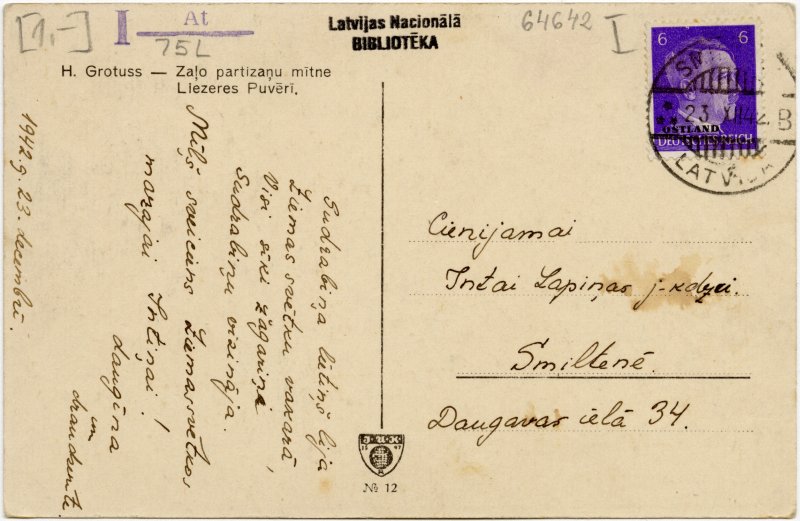 [1,-] I At
75L
Latvijas Nacionālā
BIBLIOTĒKA
64642 I
H. Grotuss — Zaļo partizaņu mītne
Liezeres Puvēri,
6 6
OSTLAND
DEUTSCHES REICH
23. XII 42. B
LATVIJA
Sudrabiņa lūtiņš lija
Ziemassvētku vakarā,
Visi sīki žagariņi
Sudrabiņu visināja.
Mīļš sveiciens Ziemassvētkos
mazajai Intiņai!
daugina
un
draudzenīte
1942.g. 23. decembrī.
Cienijamai
Intai Lapiņas j-kdzei.
Smiltenē.
Daugavas ielā 34.
№ 12